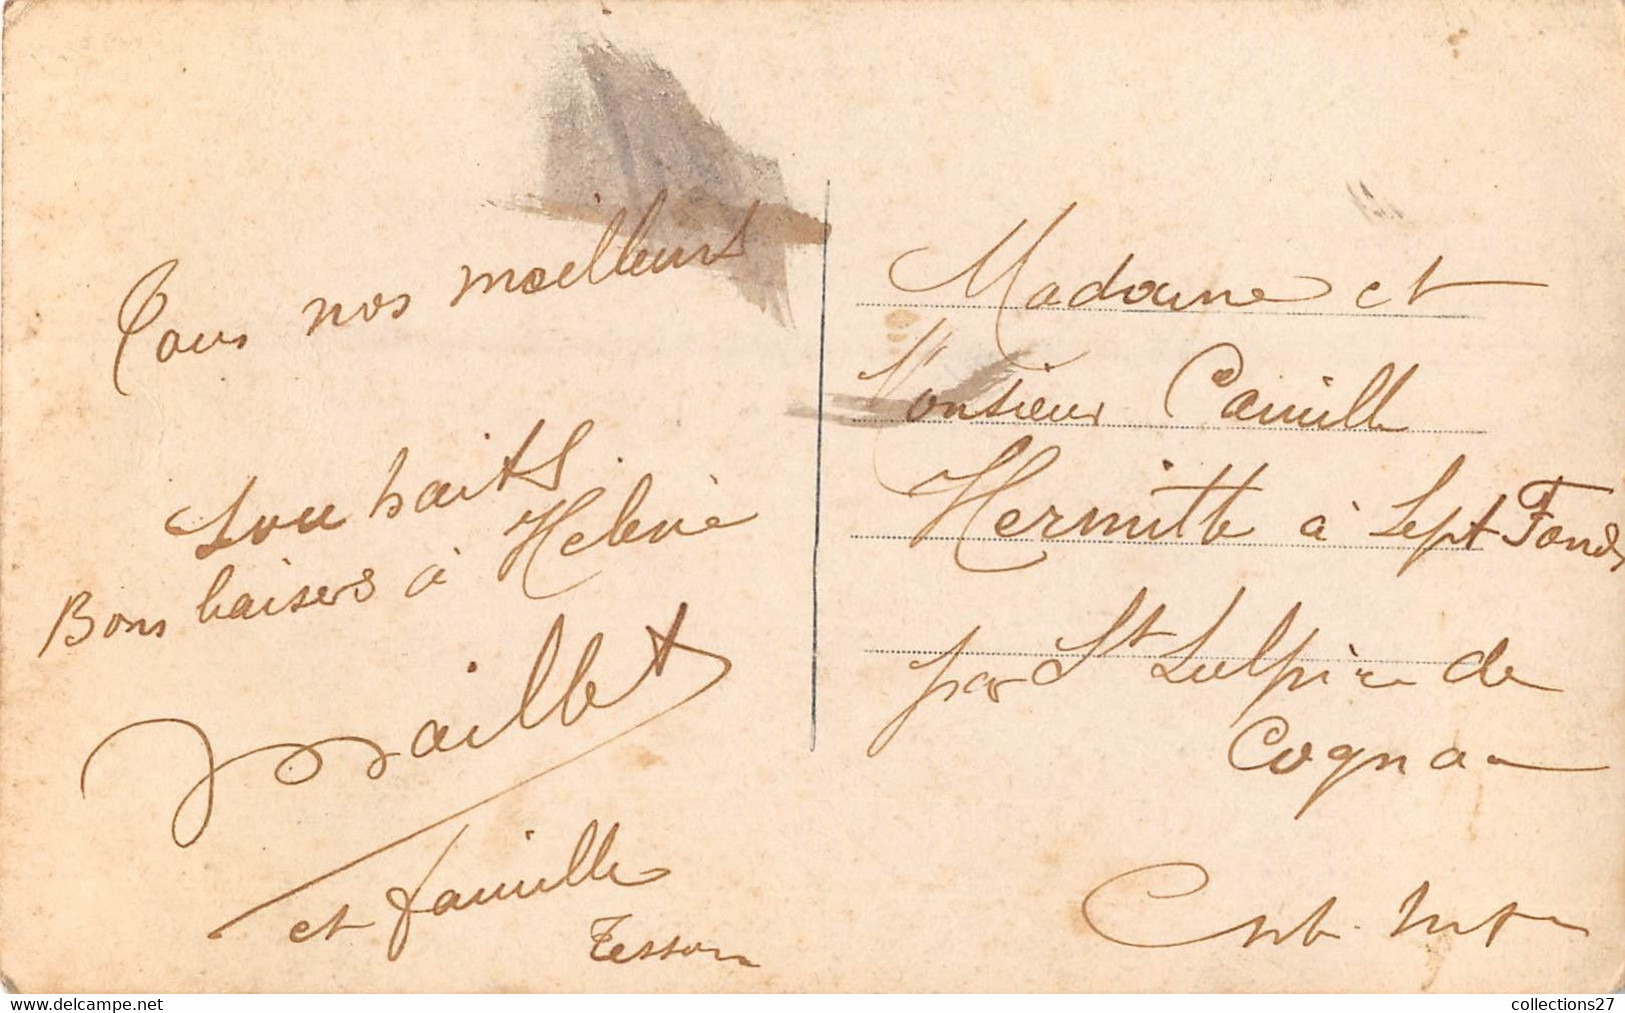 Tous nos meilleurs
souhaits.
Bons baisers à Hélène
Maillet
et famille
Tesson
Madame et
Monsieur Camille
Hermitte à Sept Fonds
par St Sulpice de
Cognac
collections27